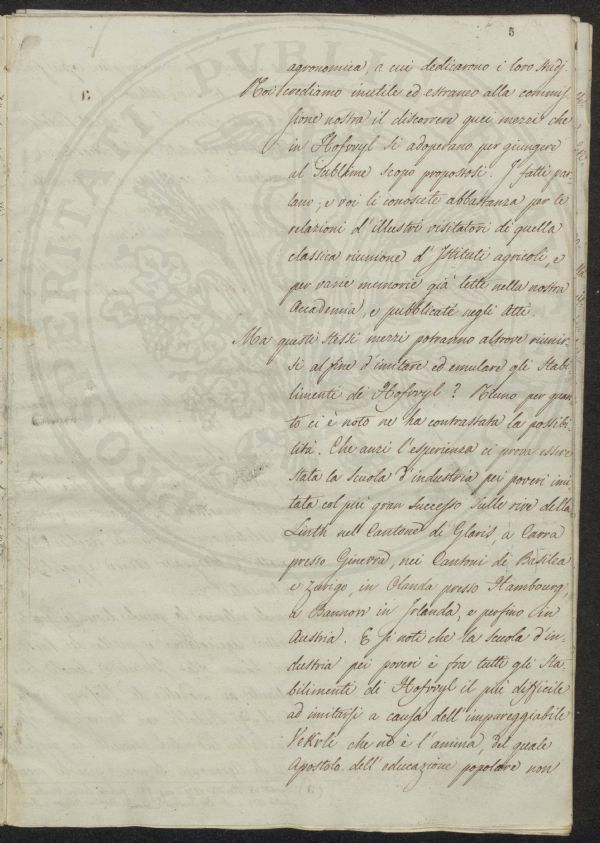 5
agronomica, a cui dedicarono i loro studj
Noi crediamo inutile ed estraneo alla commis
sione nostra il discorrere quei mezzi che
in Hofvvyl si adoperano per giungere
al sublime scopo propostosi. I fatti par
lano, e voi li conoscete abbastanza per le
relazioni d'illustri visitatori di quella
classica riunione d'Istituti agricoli, e
per varie memorie già lette nella nostra
Accademia, e pubblicate negli Atti
Ma questi stessi mezzi potranno altrove riunir
si al fine d'imitare ed emulare gli Stabi
limenti di Hofvvyl? Niuno per quan
to ci è noto ne ha contrastata la possibi
lità. Che anzi l'esperienza ci prova essere
stata la scuola d'industria pei poveri imi
tata col più gran successo sulle rive della
Linth nel Cantone di Glaris, a Carra
presso Ginevra, nei Cantoni di Basilea
e Zurigo, in Olanda presso Hambourg,
a Bannow in Irlanda, e perfino in
Austria. E si noti che la scuola d'in-
dustria pei poveri è fra tutti gli Sta-
bilimenti di Hofvvyl il più difficile
ad imitarsi a causa dell'impareggiabile
Vekrli che ne è l'amina, del quale
Apostolo dell'educazione popolare non
PROSPERITATI PUBLI